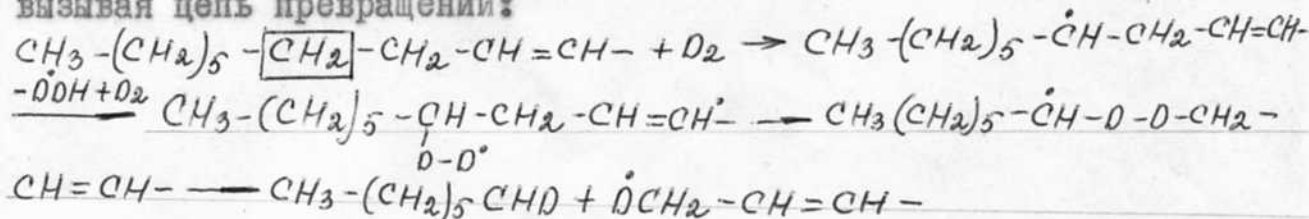 вызывая цепь превращений:
CH3-(CH2)5-CH2-CH2-CH=CH- + O2 → CH3-(CH2)5-ĊH-CH2-CH=CH-
-ȮOH+O2 → CH3-(CH2)5-CH-CH2-CH=CH˙- — CH3(CH2)5-ĊH-O-O-CH2-
O-O˙
CH=CH- — CH3-(CH2)5CHO + ȮCH2-CH=CH-